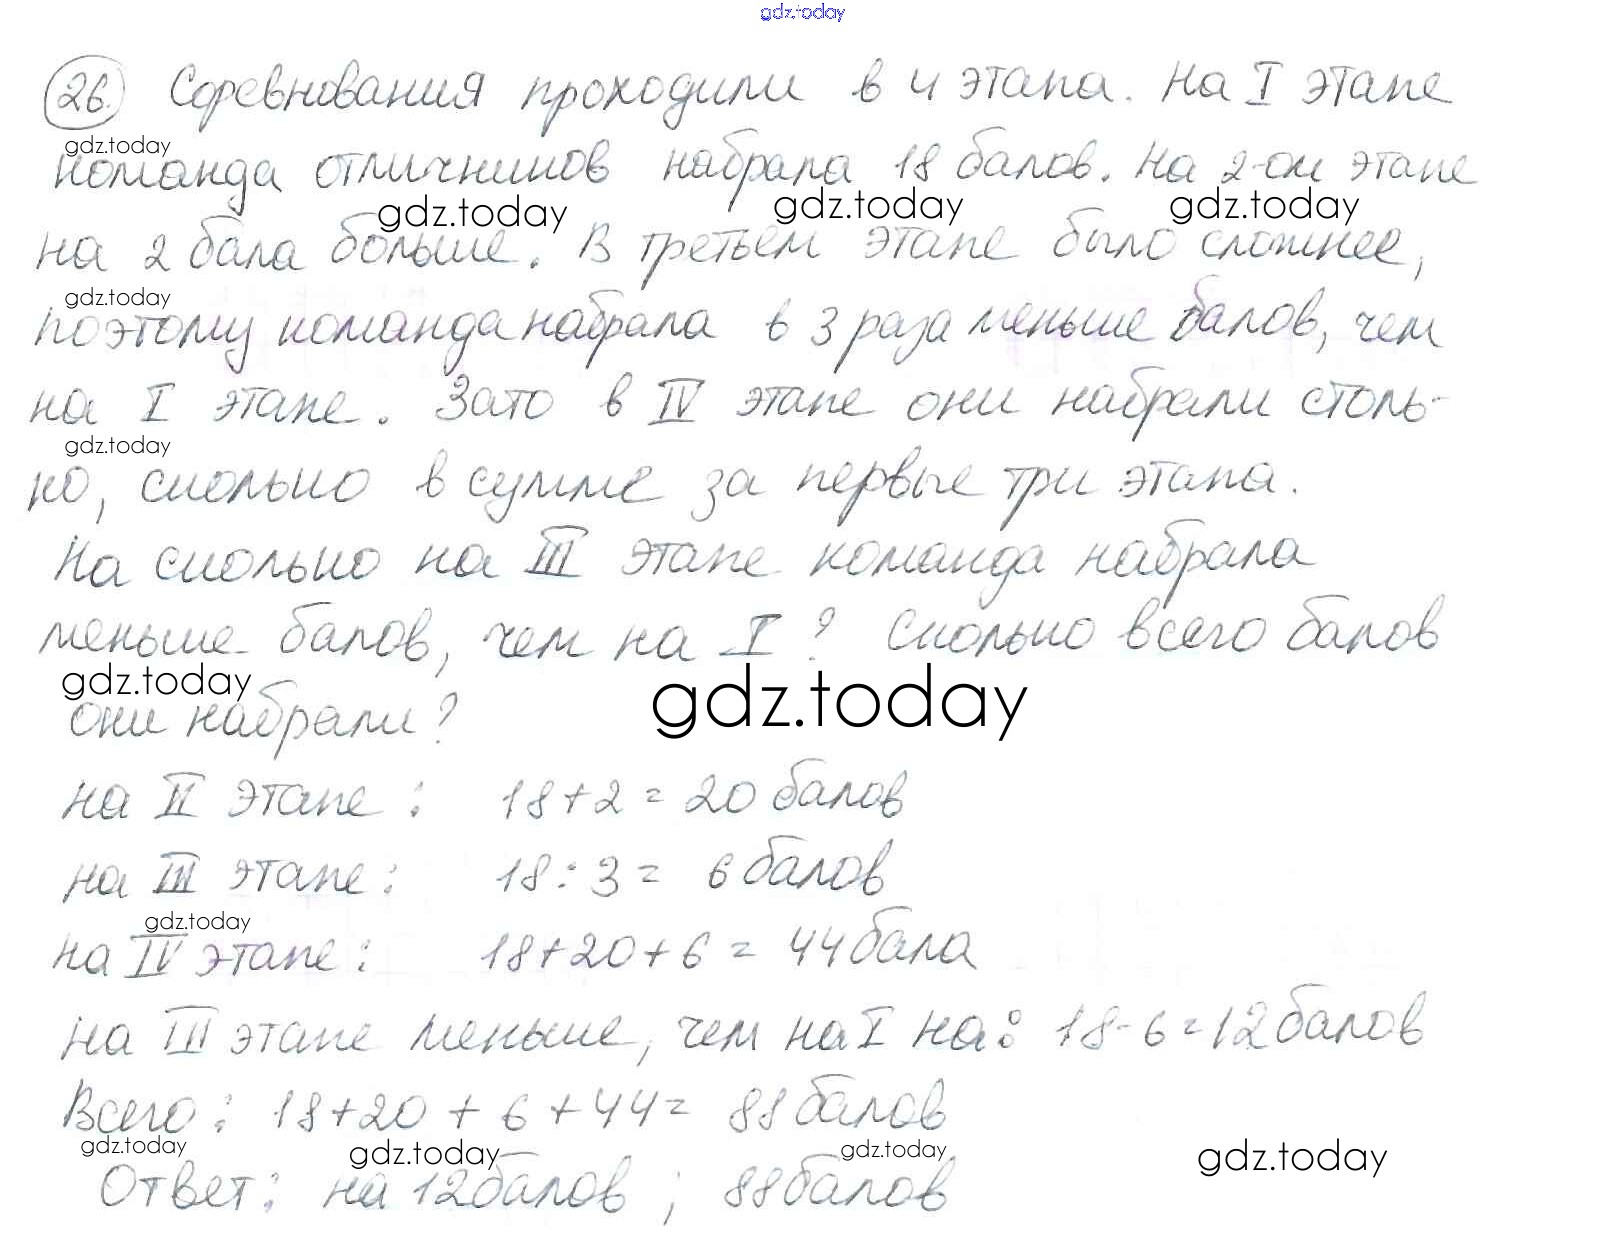 gdz.today
26. Соревнования проходили в 4 этапа. На I этапе
gdz.today
команда отличников набрала 18 балов. На 2-ом этапе
gdz.today gdz.today gdz.today
на 2 бала больше. В третьем этапе было сложнее,
gdz.today
поэтому команда набрала в 3 раза меньше балов, чем
на I этапе. Зато в IV этапе они набрали столь-
gdz.today
ко, сколько в сумме за первые три этапа.
На сколько на III этапе команда набрала
меньше балов, чем на I? Сколько всего балов
gdz.today gdz.today
они набрали?
на II этапе: 18+2=20 балов
на III этапе: 18:3= 6 балов
gdz.today
на IV этапе: 18+20+6=44 бала
на III этапе меньше, чем на I на: 18-6=12 балов
Всего: 18+20+6+44= 88 балов
gdz.today gdz.today gdz.today gdz.today
Ответ: на 12 балов; 88 балов